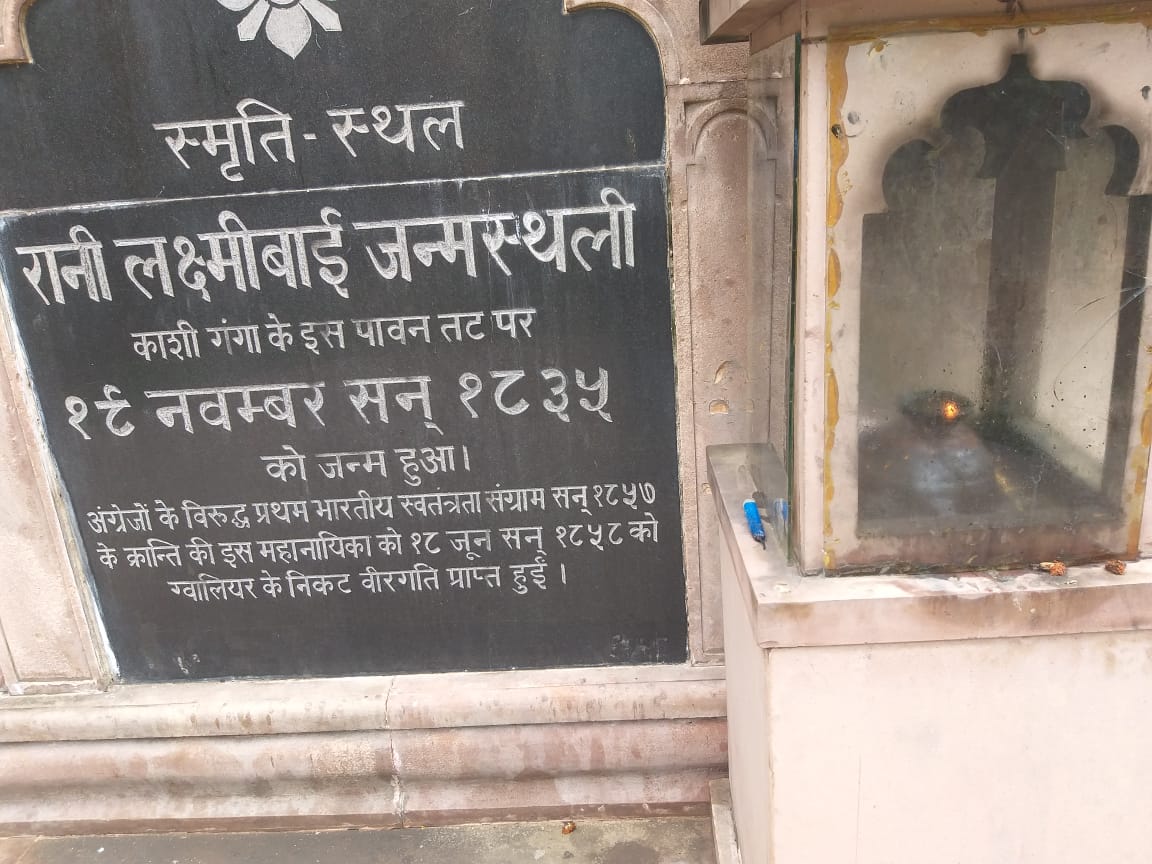 स्मृति - स्थल
रानी लक्ष्मीबाई जन्मस्थली
काशी गंगा के इस पावन तट पर
१९ नवम्बर सन् १८३५
को जन्म हुआ।
अंग्रेजों के विरुद्ध प्रथम भारतीय स्वतंत्रता संग्राम सन् १८५७
के क्रान्ति की इस महानायिका को १८ जून सन् १८५८ को
ग्वालियर के निकट वीरगति प्राप्त हुई ।